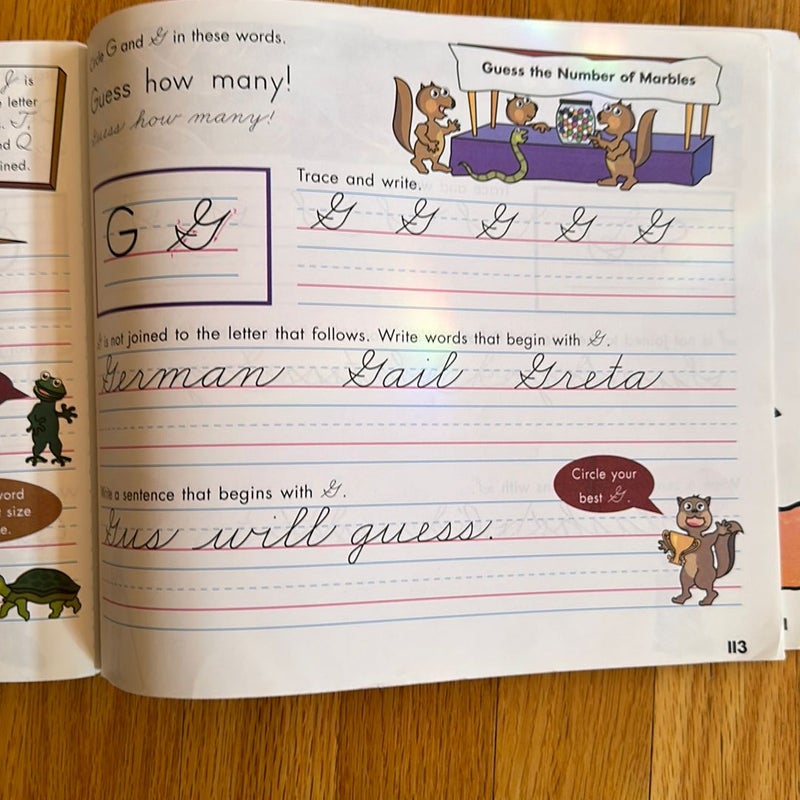 G and G in these words.
Guess how many!
Guess how many!
Guess the Number of Marbles
Trace and write.
G G
G G G G G
is not joined to the letter that follows. Write words that begin with G.
German Gail Greta
Write a sentence that begins with G.
Gus will guess.
Circle your
best G.
113
is
letter
T,
Q